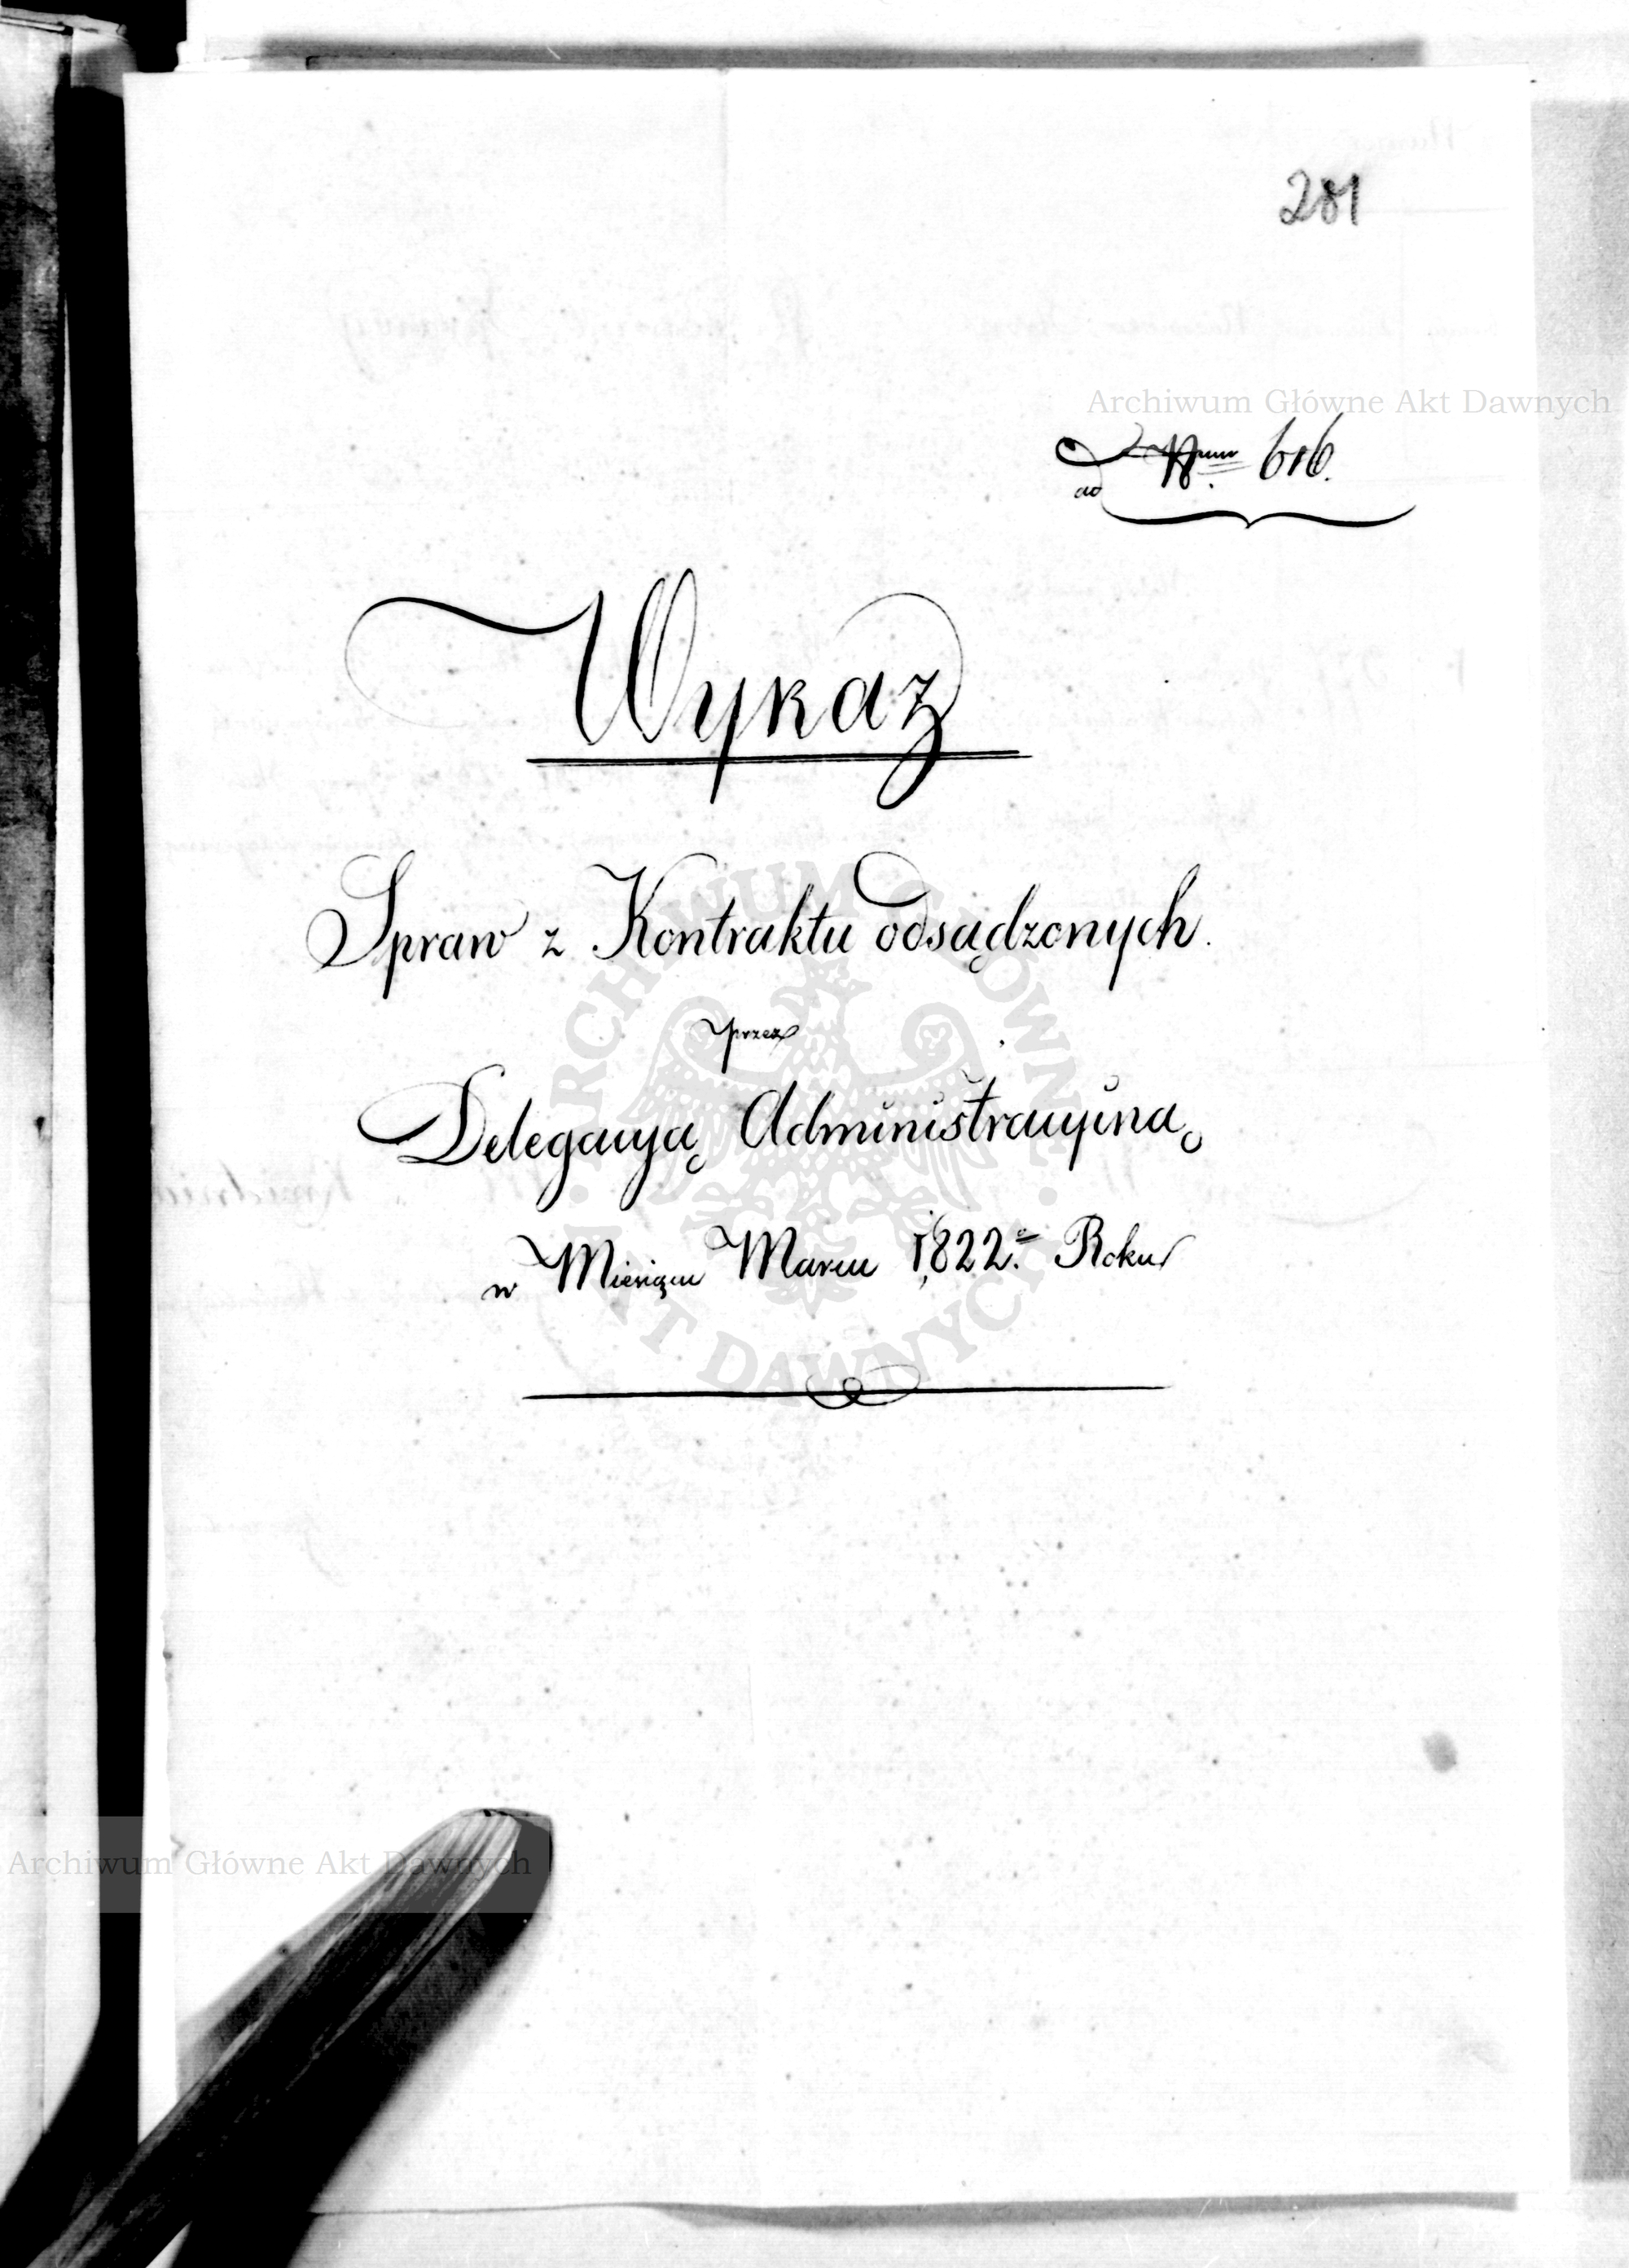 281
Archiwum Główne Akt Dawnych
ad Nrum 616.
Wykaz
Spraw z Kontraktu odsądzonych.
przez
Delegacyją Administracyiną
w Miesiącu Marcu 1822.º Roku
ARCHIWUM GŁÓWNE AKT DAWNYCH
Archiwum Główne Akt Dawnych